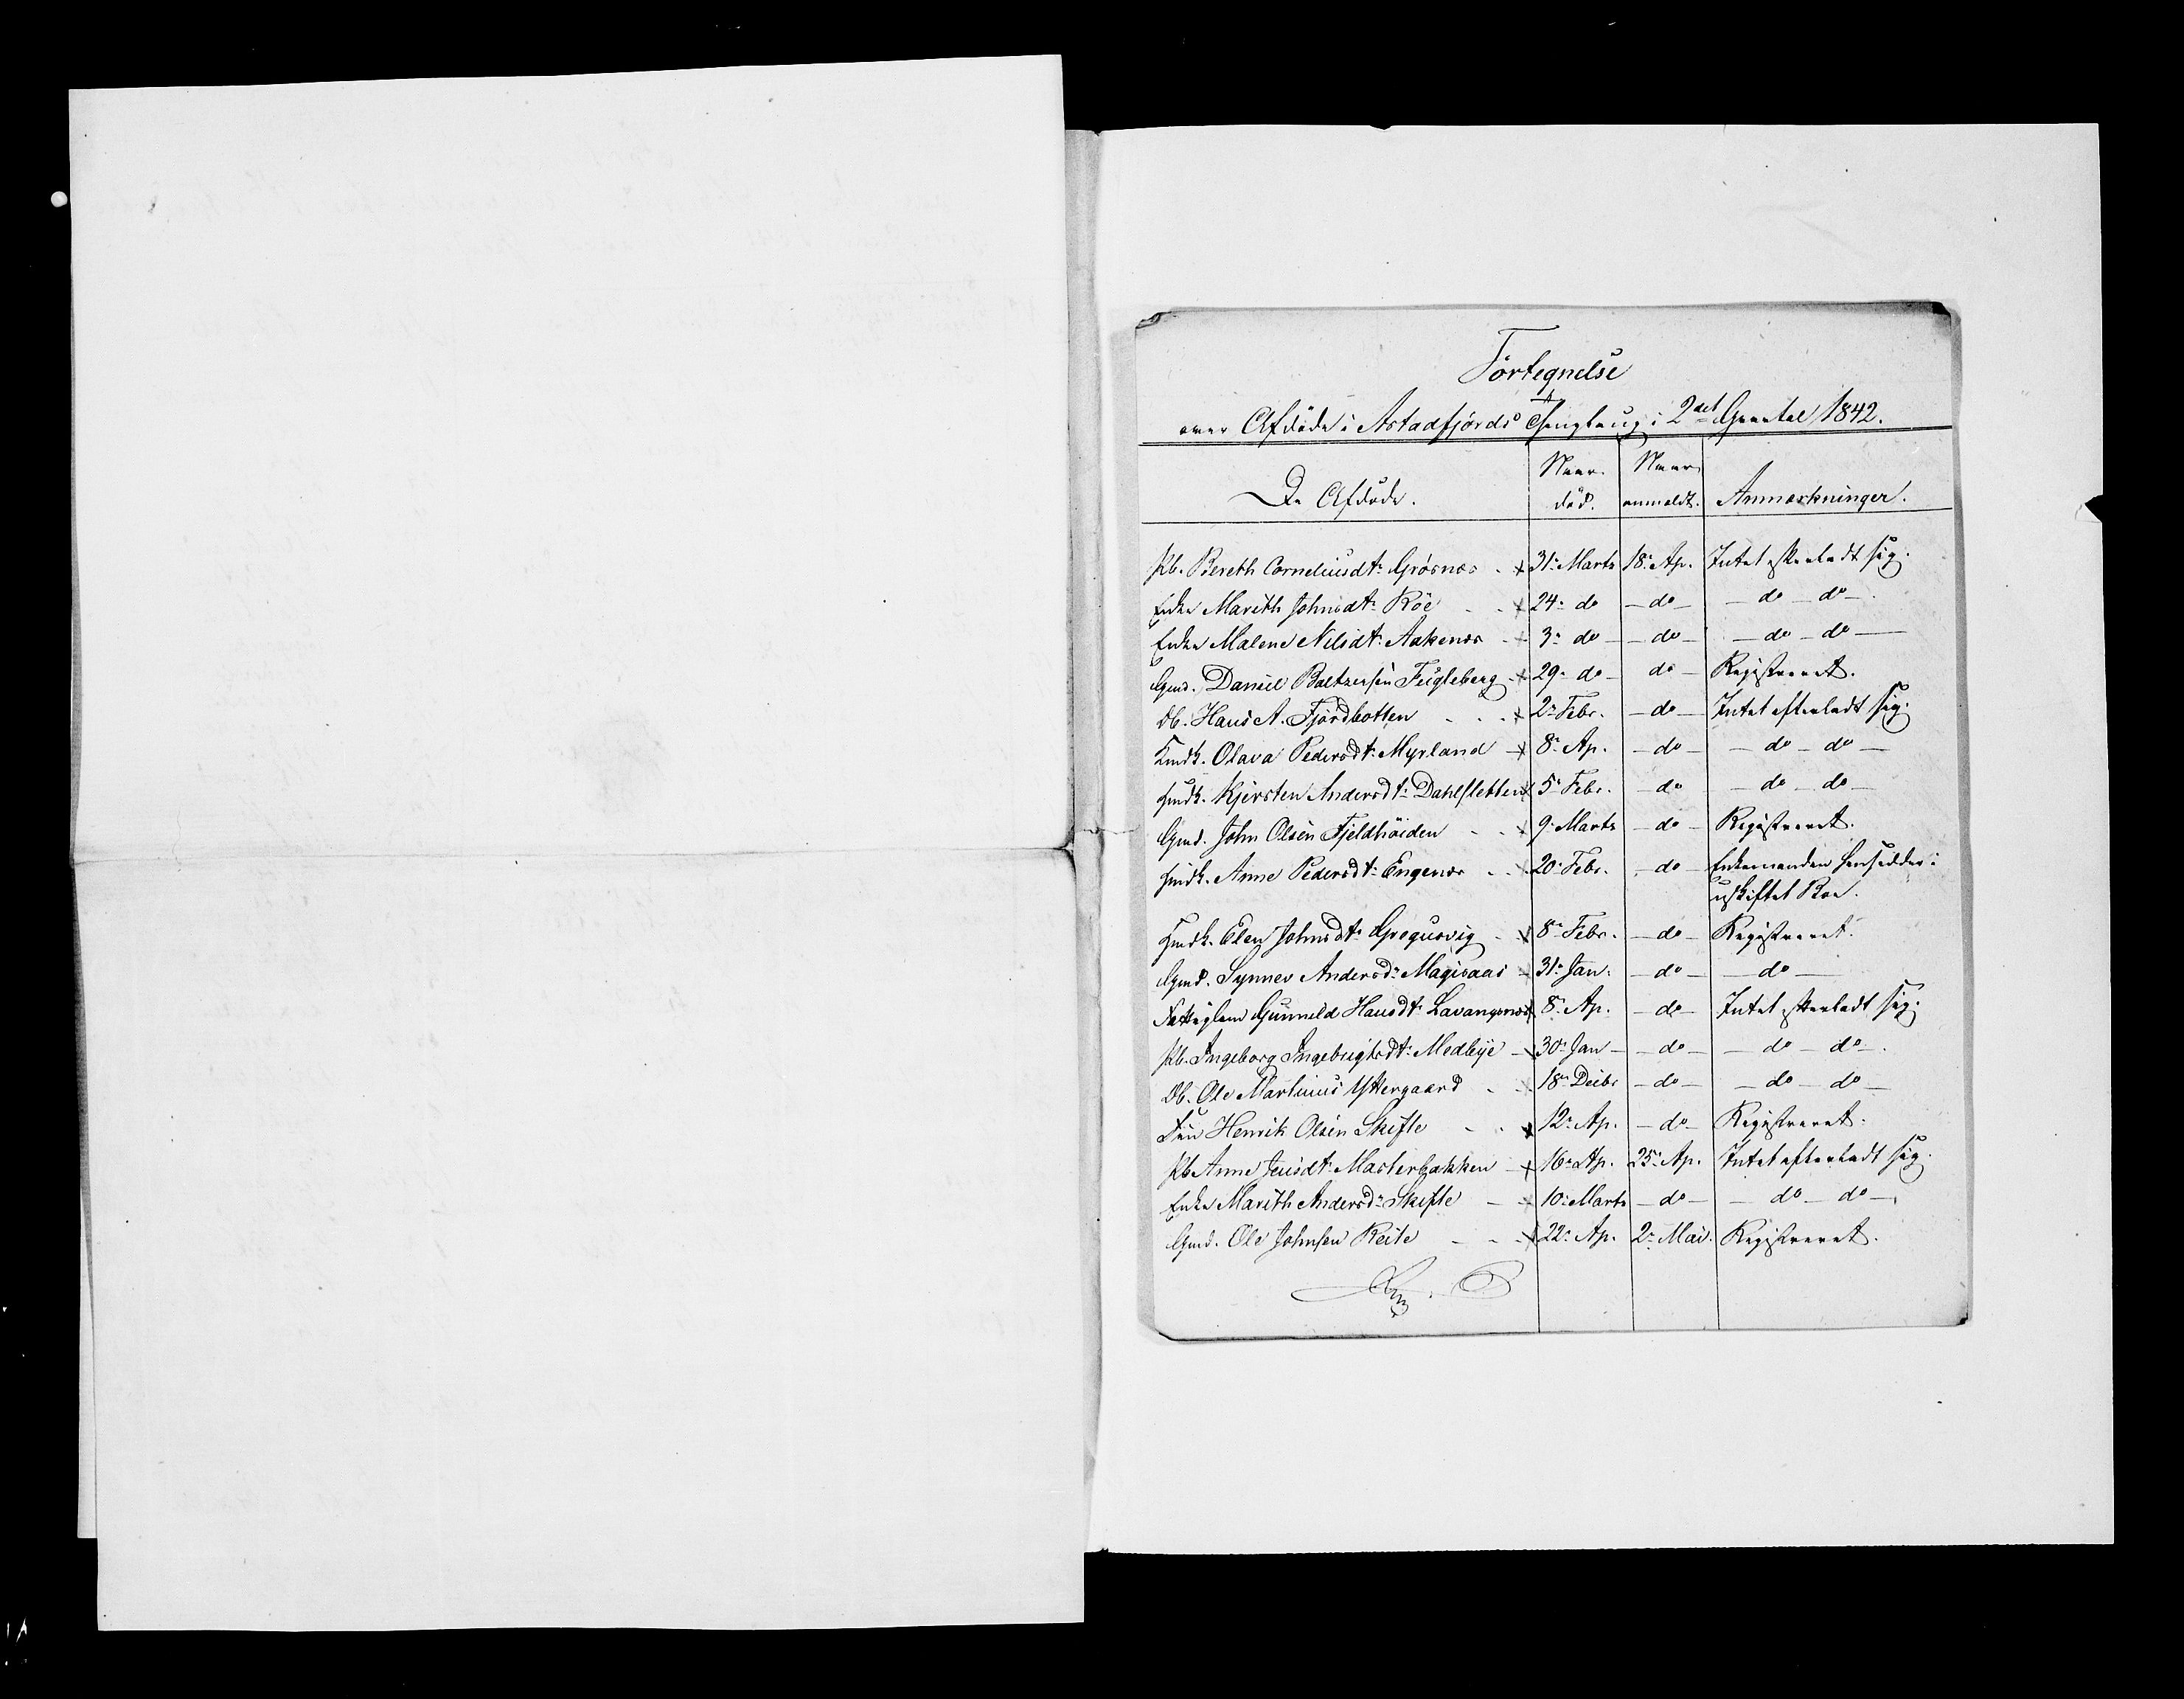 Førtegnelse
over Afdøde i Astadfjords Thinglaug i 2det Qvartal 1842.
De Afdøde. Naar død. Naar anmeldt. Anmærkninger.
Pb. Bereth Corneliusdtr Grøsnes 31te Marts 18de Ap. Intet efterladt sig.
Enke Marith Johnsdtr Röe 24de do – do – – do – do –
Enke Malene Nilsdtr Aakenes 3de do – do – – do – do –
Gmd. Daniel Baltzersen Fugleberg 29de do do – Registreret.
Db. Hans A. Fjordbotten 2den Febr. – do – Intet efterladt sig.
Kmdk. Olava Pedersdtr Myrland 8de Ap. – do – – do – do –
Hmdk. Kjersten Andersdtr Dahlsletten 5te Febr. – do – do – do –
Gmd. John Olsen Fjeldhöiden 9de Marts – do – Registreret.
Hmdk. Anne Pedersdtr Engenes 20de Febr. – do – Enkemanden hensidder i
uskiftet Boe.
Hmdk. Elen Johnsdtr Grogusvig 8de Febr. – do – Registreret.
Gmd. Synnev Andersdr Magisaas 31te Jan. – do – – do –
Fattiglem Gunnild Hansdtr Lavangsnes 8de Ap. – do – Intet efterladt sig.
Pb. Ingeborg Ingebrigtsdtr Medbye 30te Jan – – do – – do – do –.
Db. Ole Martinius Yttergaard 18de Decbr – do – – do – do –
Henrik Olsen Skifte 12te Ap. – do – Registreret.
Pb Anne Jensdtr Masterbakken 16de Ap. 25de Ap. Intet efterladt sig.
Enke Marith Andersdr Skifte 10de Marts – do – – do – do –
Gmd. Ole Johnsen Reite 22de Ap. 2den Mai. Registreret.